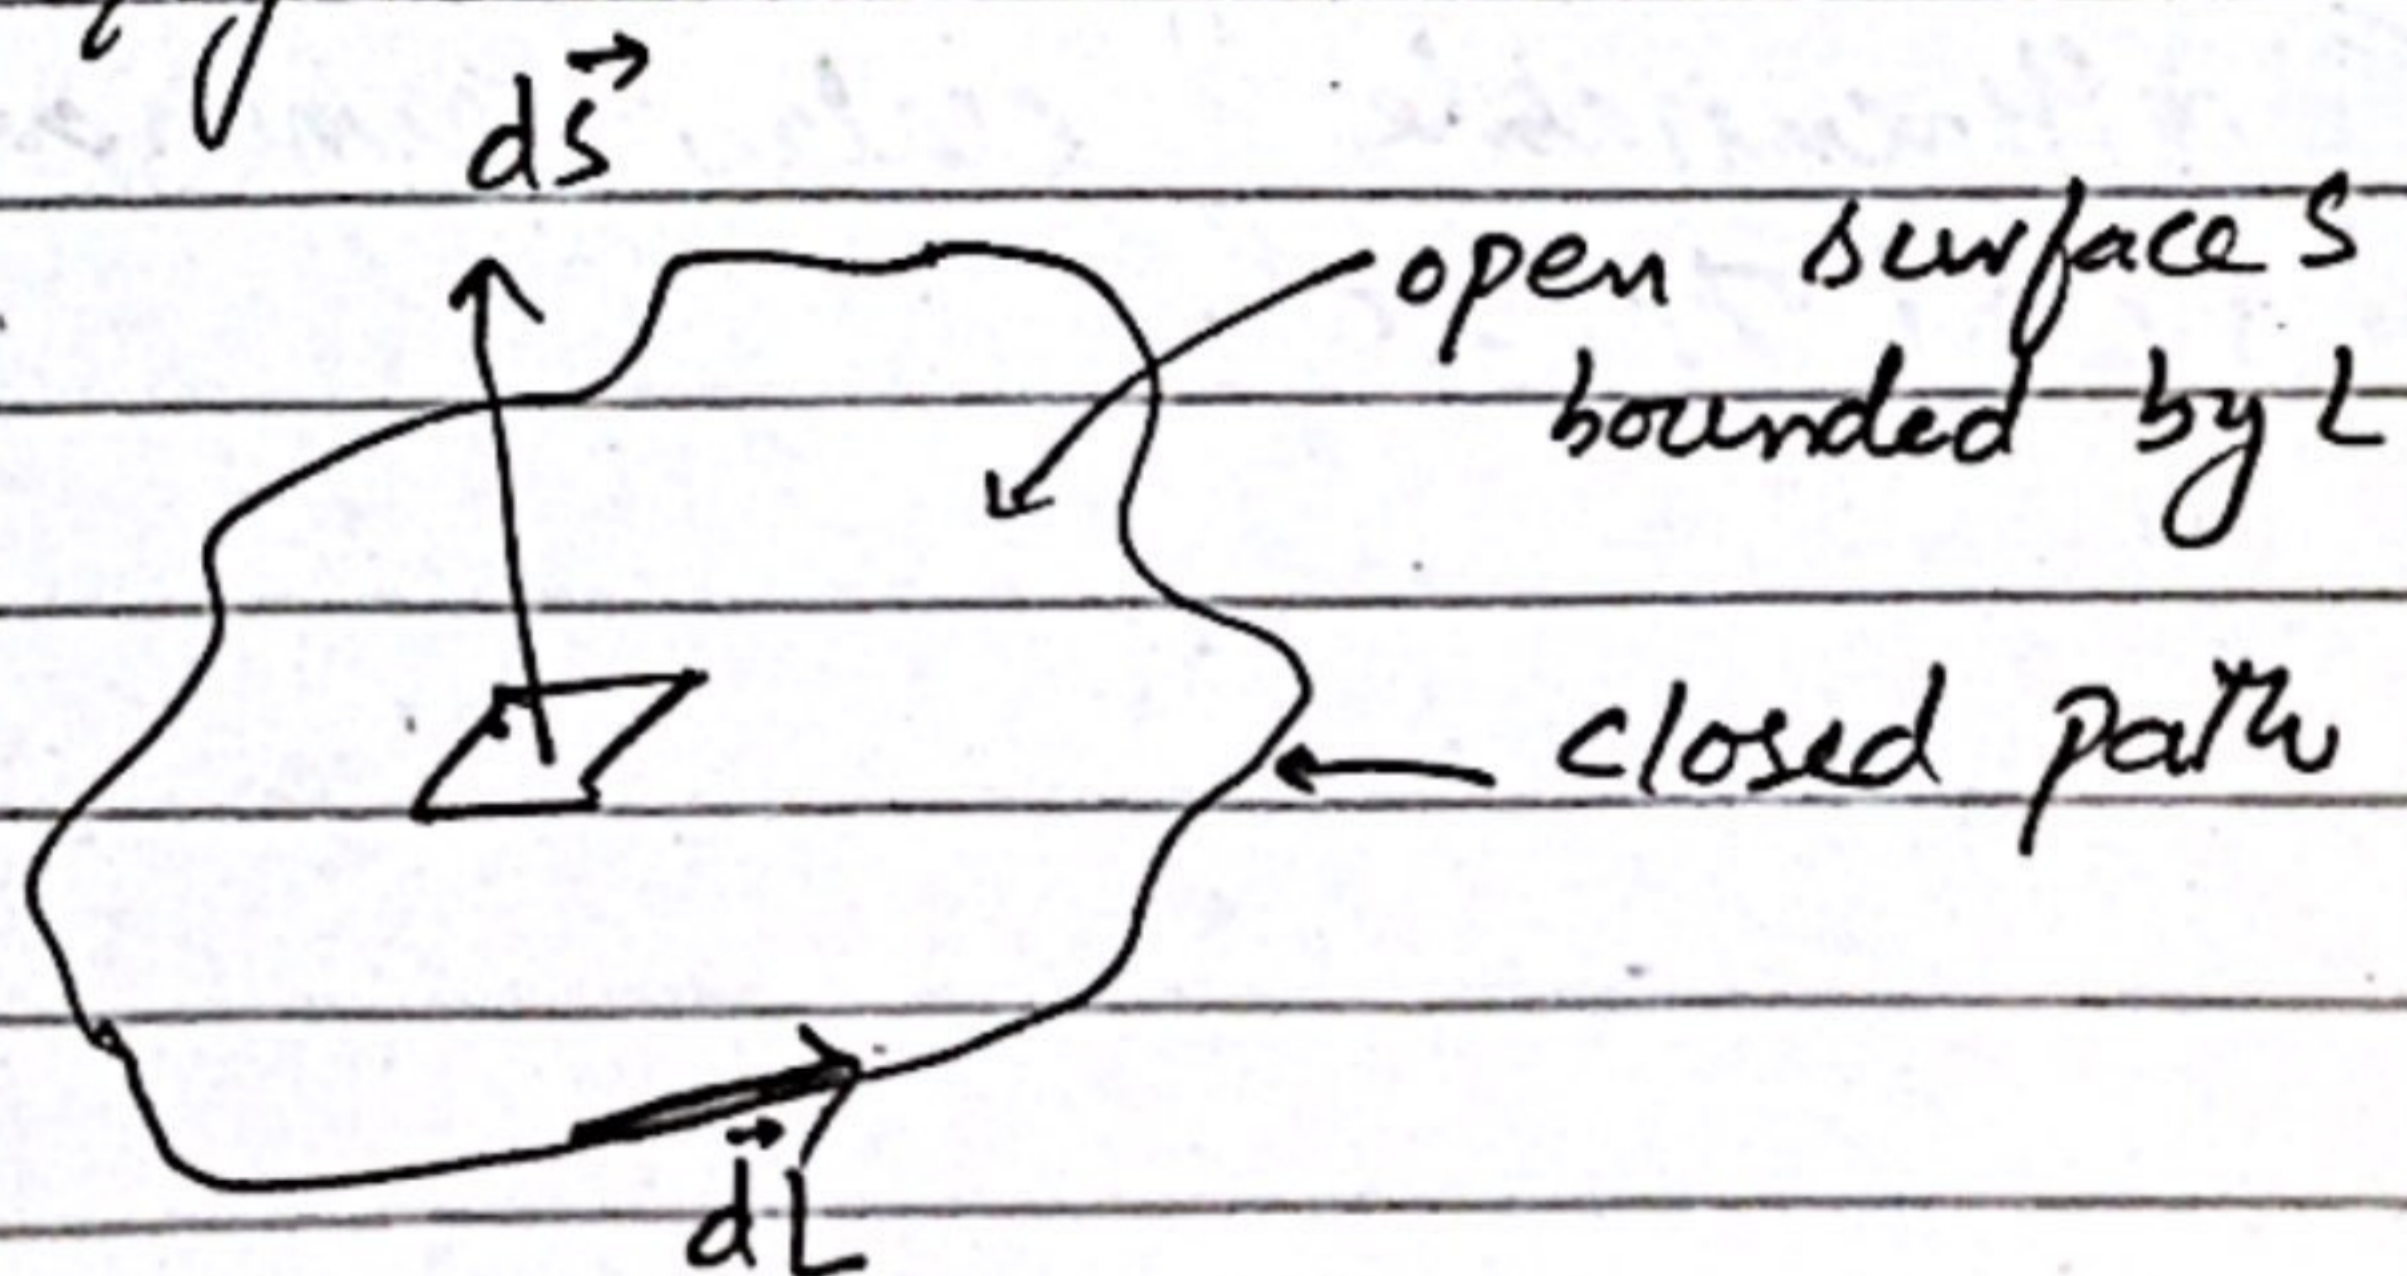 dS⃗
open surface S
bounded by L
closed path
dL⃗